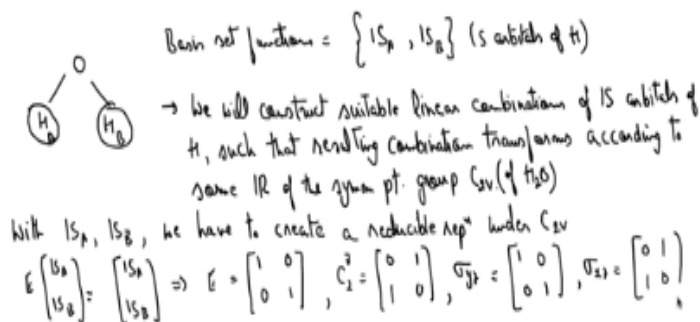 Basis set functions = {1S_A, 1S_B} (S orbitals of H)
O
H_A H_B
→ We will construct suitable linear combinations of 1S orbitals of
H, such that resulting combination transforms according to
some IR of the symm pt. group C_2v. (of H_2O)
With 1S_A, 1S_B, we have to create a reducible rep^n under C_2v
E [1S_A 1S_B] = [1S_A 1S_B] ⇒ E = [1 0 0 1], C_2^z = [0 1 1 0], σ_yz = [1 0 0 1], σ_xz = [0 1 1 0]